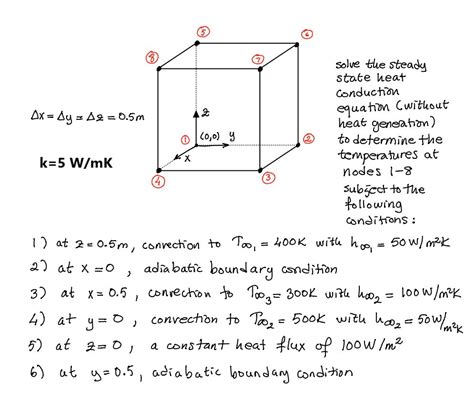 5
6
8
7
Δx = Δy = Δz = 0.5m
z
1 (0,0) y
2
k=5 W/mK
x
4
3
solve the steady
state heat
conduction
equation (without
heat generation)
to determine the
temperatures at
nodes 1-8
subject to the
following
conditions :
1) at z = 0.5m, convection to T∞₁ = 400K with h∞₁ = 50 W/m²K
2) at x = 0 , adiabatic boundary condition
3) at x = 0.5 , convection to T∞₃ = 300K with h∞₂ = 100 W/m²K
4) at y = 0 , convection to T∞₂ = 500K with h∞₂ = 50 W/m²K
5) at z = 0 , a constant heat flux of 100 W/m²
6) at y = 0.5 , adiabatic boundary condition